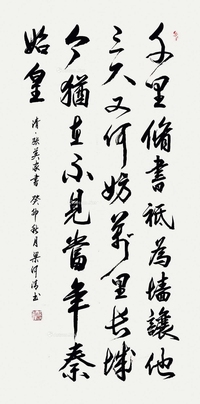 千里脩書祗為墻讓他
三尺又何妨萬里長城
今猶在不見當年秦
始皇
清·張英家書 癸卯秋月